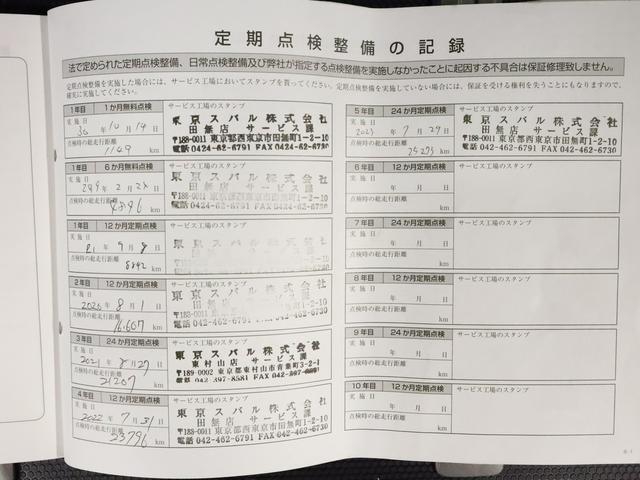 定期点検整備の記録
法で定められた定期点検整備、日常点検整備及び弊社が指定する点検整備を実施しなかったことに起因する不具合は保証修理致しません。
定期点検整備を実施した場合には、サービス工場においてスタンプを貰ってください。定期点検整備を実施していない場合には、保証を受ける権利を失うことにもなりますので、
確実に実施してください。
1年目 1か月無料点検 サービス工場のスタンプ
実施日
30年10月14日
点検時の総走行距離
1149 km
東京スバル株式会社
田無店 サービス課
〒188-0011 東京都西東京市田無町1-2-10
電話 0424-62-6791 FAX 0424-62-6730
1年目 6か月無料点検 サービス工場のスタンプ
実施日
年2月 日
点検時の総走行距離
4896 km
東京スバル株式会社
田無店 サービス課
〒188-0011 東京都西東京市田無町1-2-10
電話 0424-62-6791 FAX 0424-62-6730
1年目 12か月定期点検 サービス工場のスタンプ
実施日
R1年9月8日
点検時の総走行距離
8842 km
東京スバル株式会社
田無店 サービス課
2年目 12か月定期点検 サービス工場のスタンプ
実施日
2020年8月1日
点検時の総走行距離
16607 km
東京スバル株式会社
田無店 サービス課
3年目 24か月定期点検 サービス工場のスタンプ
実施日
2021年 月27日
点検時の総走行距離
21207 km
東京スバル株式会社
東村山店 サービス課
〒189-0002 東京都東村山市青葉町3-2-1
電話 042-397-8581 FAX
4年目 12か月定期点検 サービス工場のスタンプ
実施日
2022年7月31日
点検時の総走行距離
23796 km
東京スバル株式会社
田無店 サービス課
〒188-0011 東京都西東京市田無町1-2-10
電話 042-462-6791 FAX 042-462-6730
5年目 24か月定期点検 サービス工場のスタンプ
実施日
2023年7月27日
点検時の総走行距離
25275 km
東京スバル株式会社
田無店 サービス課
〒188-0011 東京都西東京市田無町1-2-10
電話 042-462-6791 FAX 042-462-6730
6年目 12か月定期点検 サービス工場のスタンプ
実施日
年 月 日
点検時の総走行距離
km
7年目 24か月定期点検 サービス工場のスタンプ
実施日
年 月 日
点検時の総走行距離
km
8年目 12か月定期点検 サービス工場のスタンプ
実施日
年 月 日
点検時の総走行距離
km
9年目 24か月定期点検 サービス工場のスタンプ
実施日
年 月 日
点検時の総走行距離
km
10年目 12か月定期点検 サービス工場のスタンプ
実施日
年 月 日
点検時の総走行距離
km